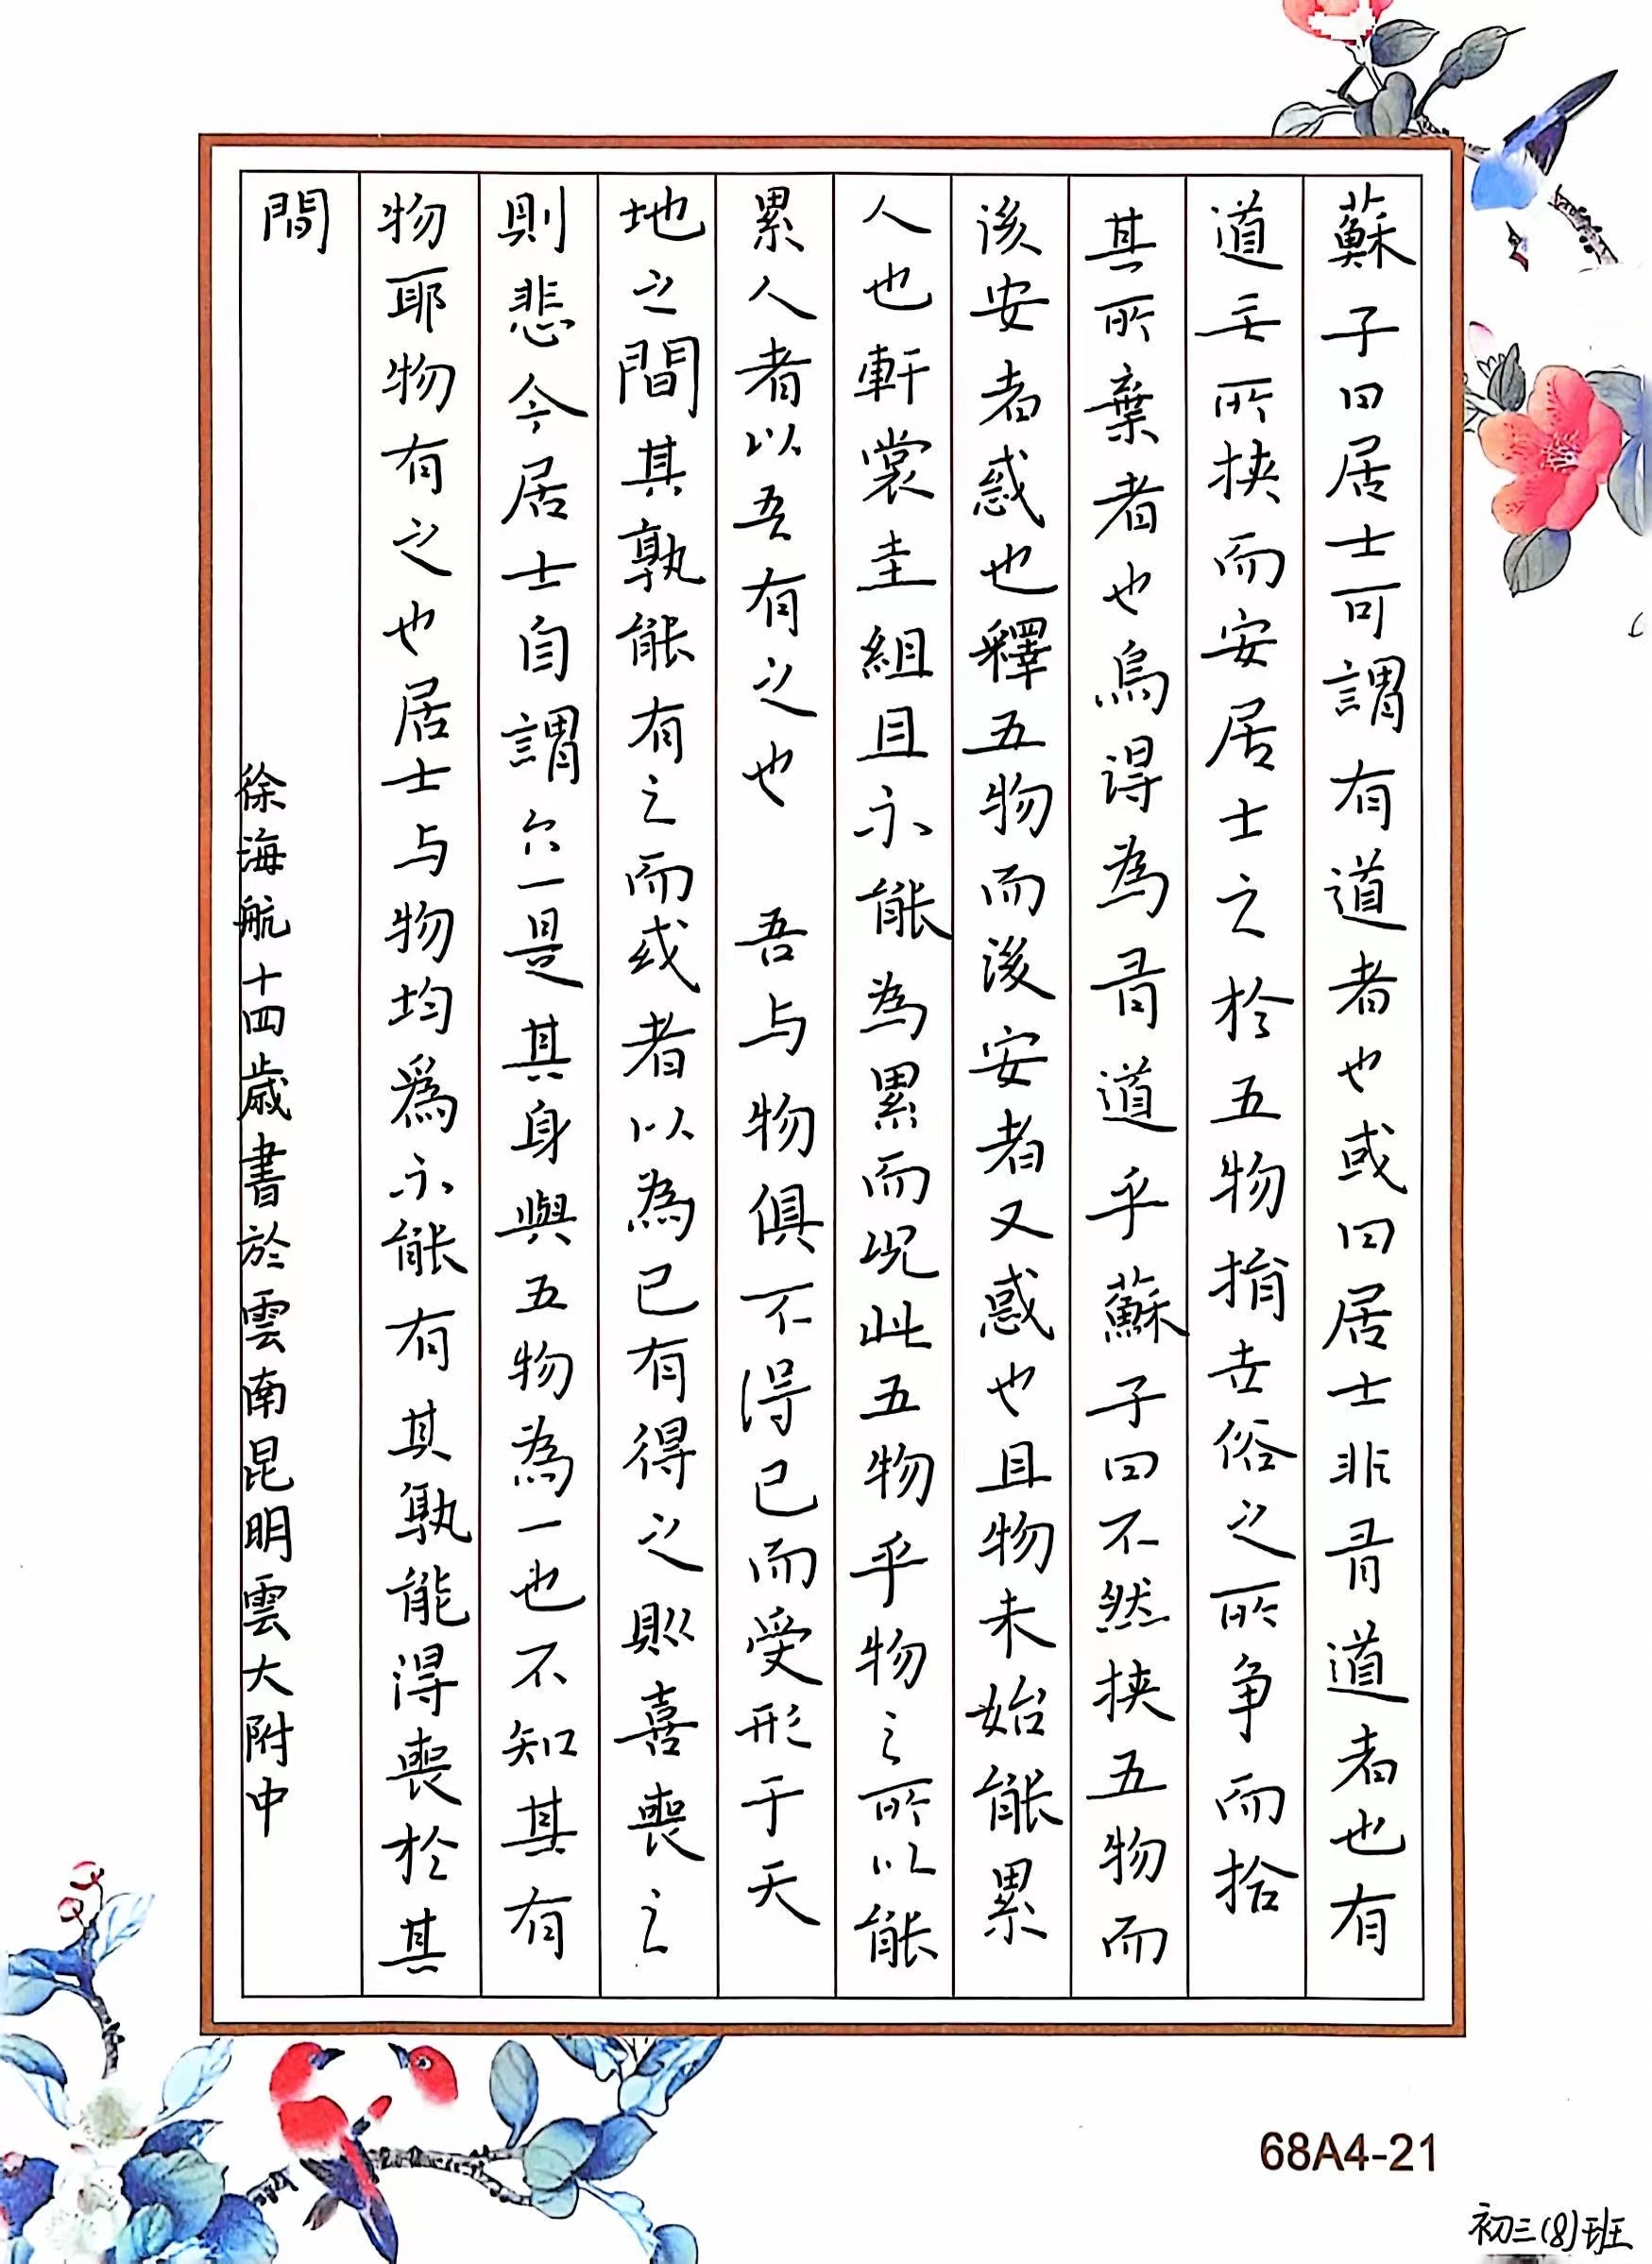 蘇子曰居士可謂有道者也或曰居士非有道者也有
道无所挟而安居士之於五物捐世俗之所争而拾
其所棄者也烏得為有道乎蘇子曰不然挟五物而
後安者惑也釋五物而後安者又惑也且物未始能累
人也軒裳圭組且不能為累而况此五物乎物之所以能
累人者以吾有之也 吾与物俱不得已而受形于天
地之間其孰能有之而或者以為己有得之則喜喪之
則悲今居士自謂六一是其身與五物為一也不知其有
物耶物有之也居士与物均為不能有其孰能得喪於其
間
徐海航十四歲書於雲南昆明雲大附中
68A4-21
初三(8)班